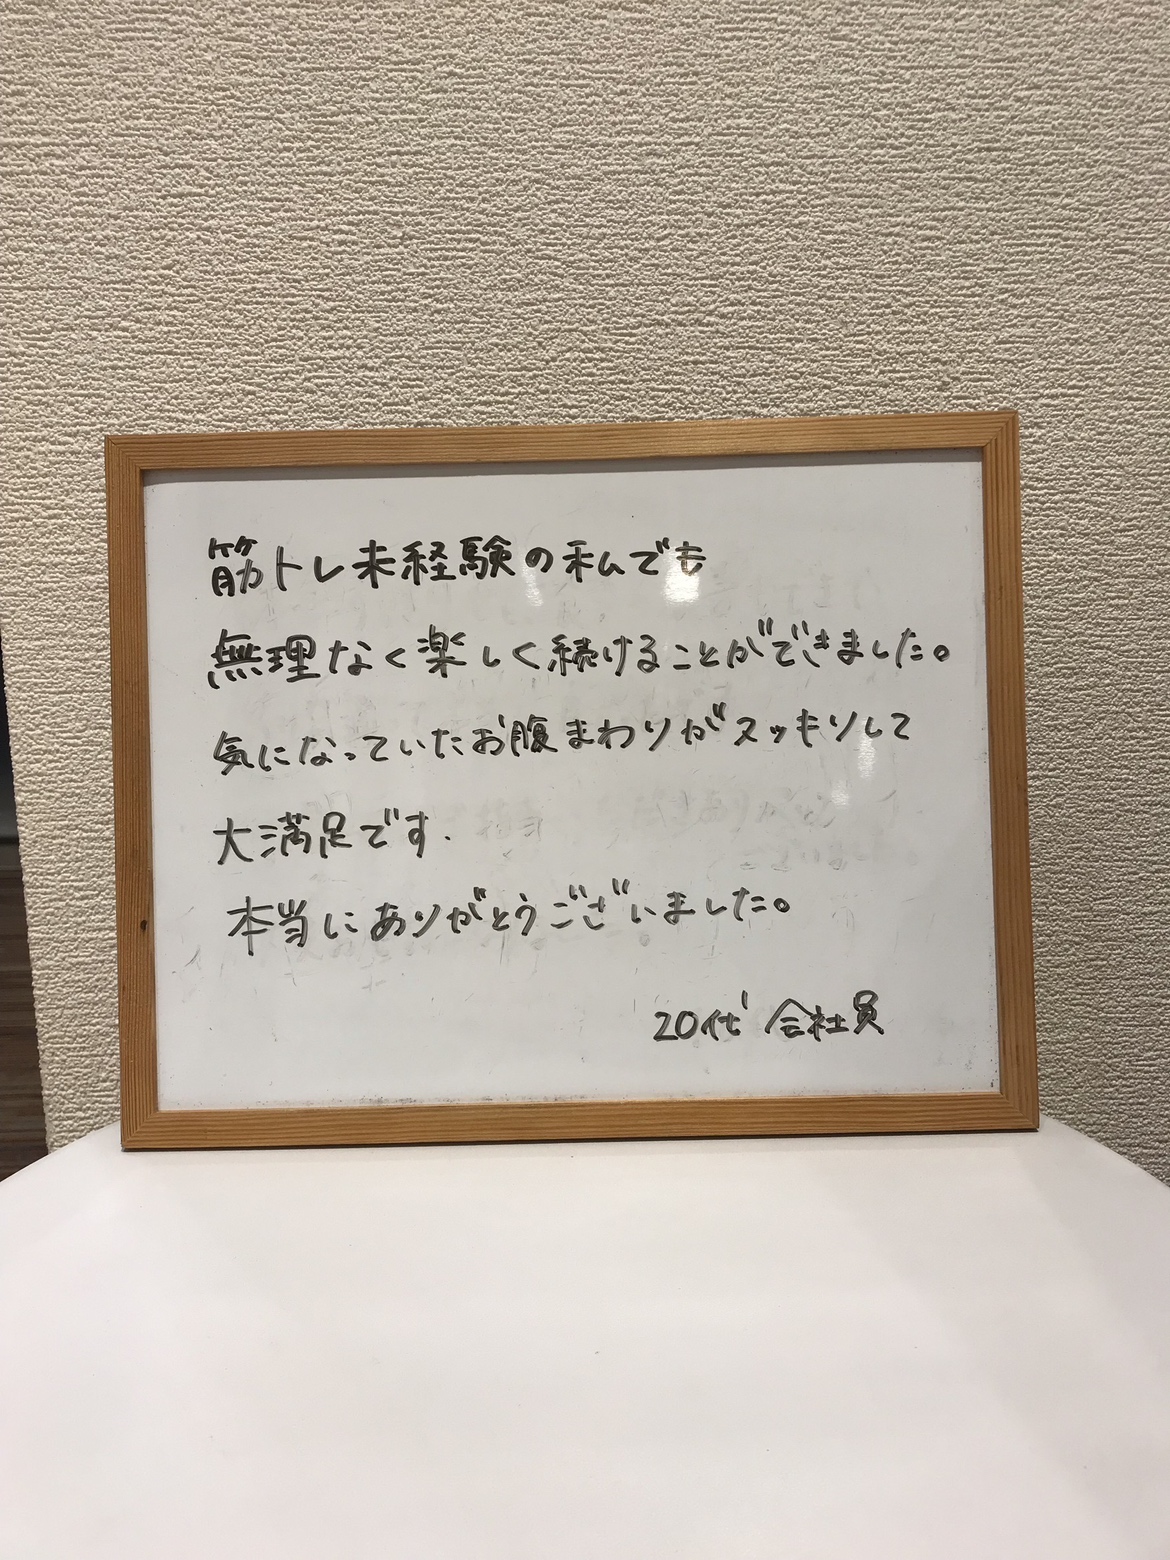 筋トレ未経験の私でも
無理なく楽しく続けることができました。
気になっていたお腹まわりがスッキリして
大満足です.
本当にありがとうございました。
20代 会社員